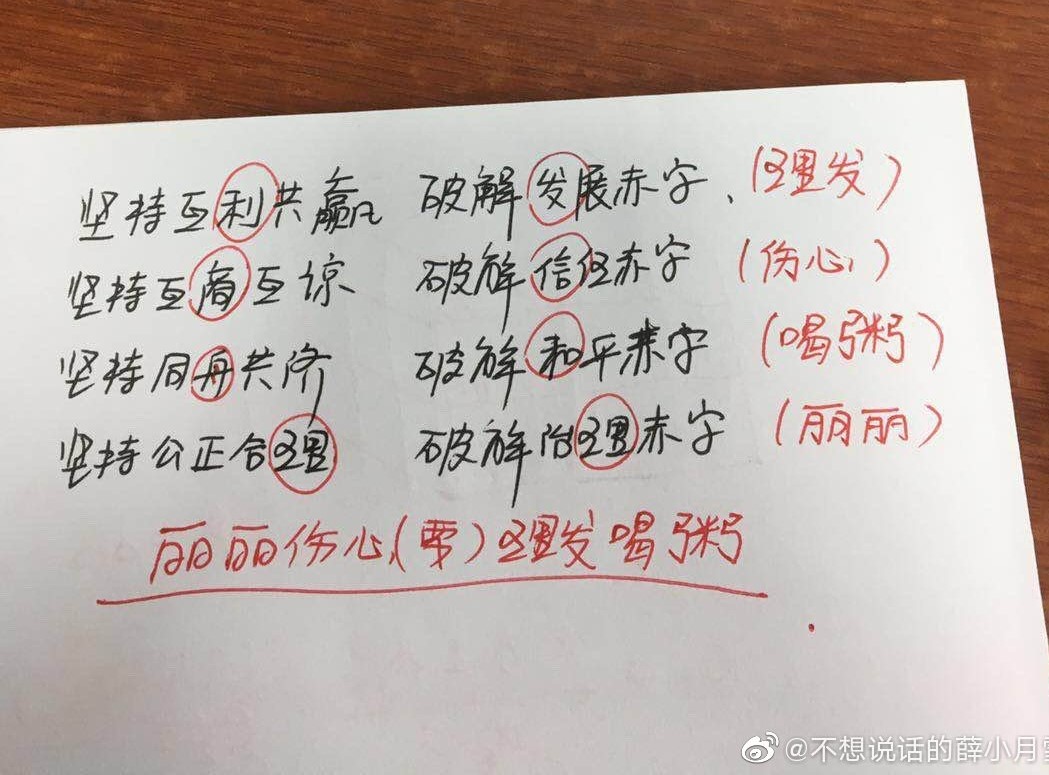 坚持互利共赢 破解发展赤字、(理发)
坚持互商互谅 破解信任赤字 (伤心)
坚持同舟共济 破解和平赤字 (喝粥)
坚持公正合理 破解治理赤字 (丽丽)
丽丽伤心(要)理发喝粥
@不想说话的薛小月